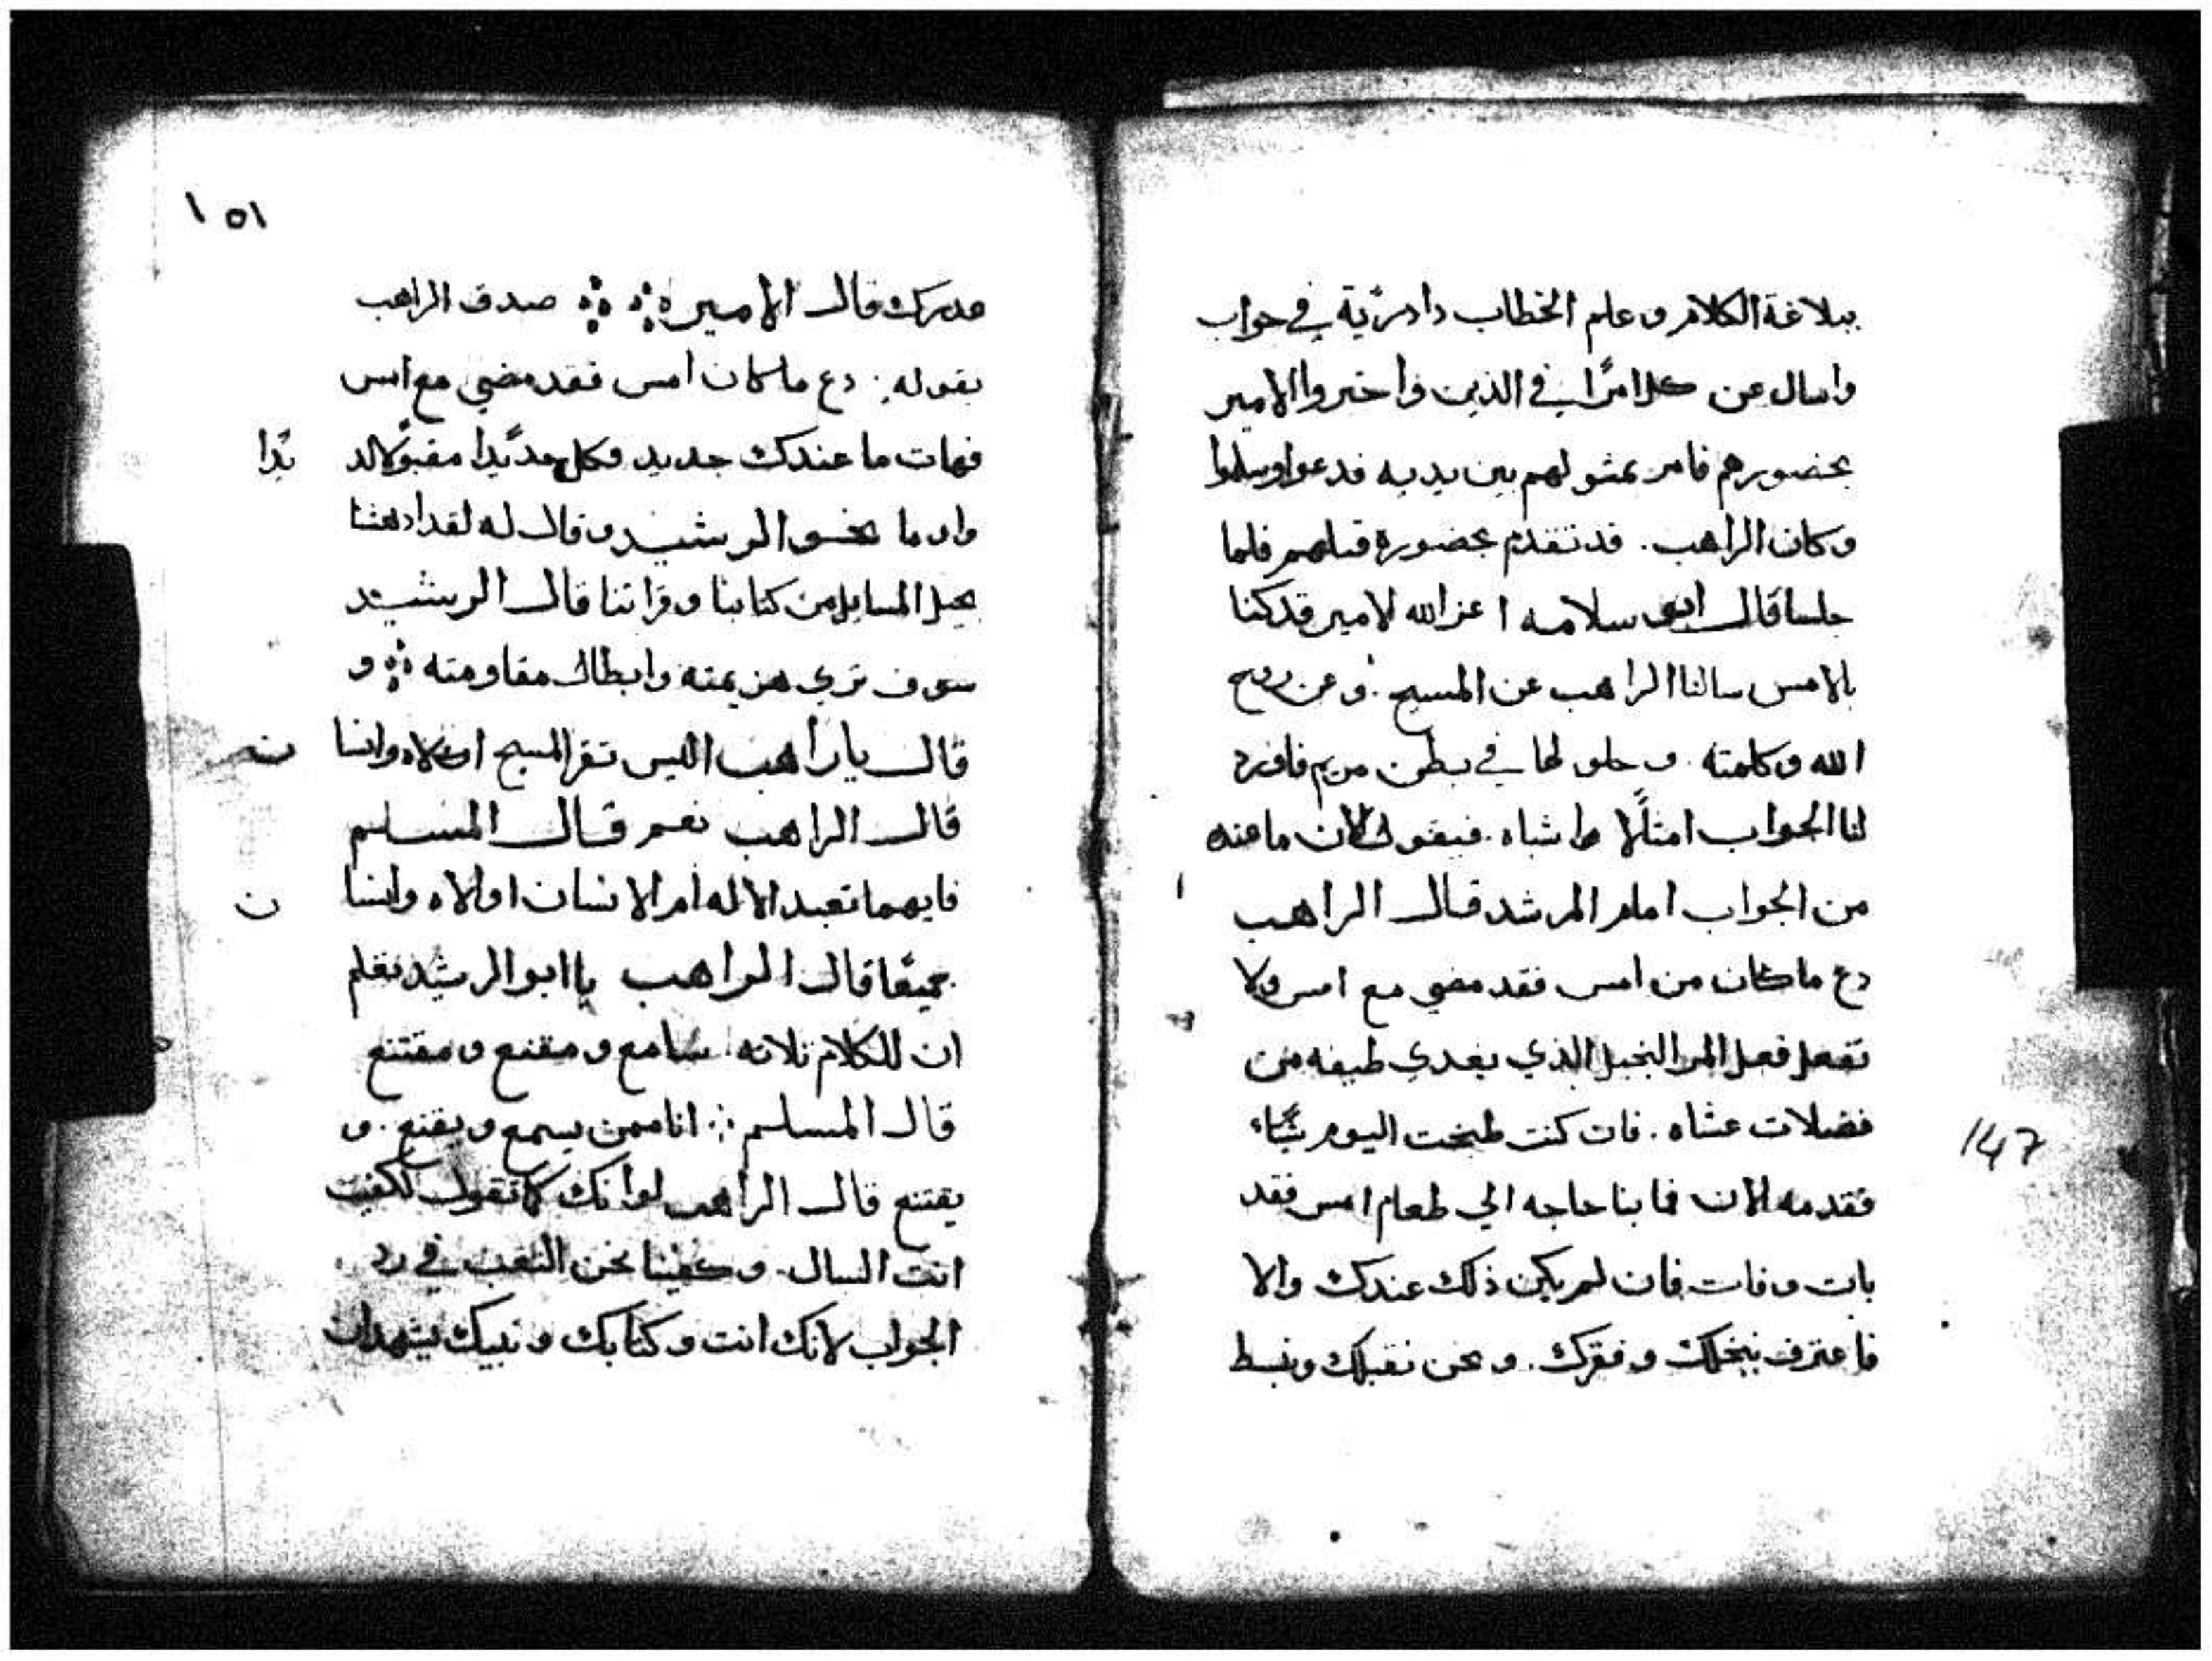 ببلاغة الكلام وعلم الخطاب دا درّية في جواب
واسال عن كلامرًا في الذين واختروا الامير
بحضورهم فامر بمثولهم بين يديه فدعوا وسلموا
وكان الراهب. قد تقدم بحضوره قبلهم فلما
جلسا قال ابو سلامه اعز الله لامير قد كنا
بالامس سالنا الراهب عن المسيح. وعن روح
الله وكلمته. وحلولها في بطن مريم فاورد
لنا الجواب امثالًا واشباه. فيقول لالان ما عنده
من الجواب امام المرشد قال الراهب
دع ما كان من امس فقد مضي مع امس ولا
تفعل فعل المر البخيل الذي يغدي ضيفه من
فضلات عشاه. فان كنت طبخت اليوم شيًا
فقدمه الان فما بنا حاجه الي طعام امس فقد
بات وفات فان لم يكن ذلك عندك والا
فاعترف ببخلك وفقرك. ونحن نقبلك ونبسط
147
١٥١
عدرك قال الامير صدق الراهب
بقوله: دع ما كان امس فقد مضي مع امس
فهات ما عندك جديد فكل جديدًا مقبولًا لد
يدا
واوما نحو الرشيد وقال له لقد ادهشنا
بحيل المسايل من كتابنا وقراتنا قال الرشيد
سوف تري هزيمته وابطال مقاومته و
قال ياراهب اليس تقر المسيح اولاه وانسا
ن
قال الراهب نعم قال المسلم
فايهما تعبد الاله ام الانسان اولاه وانسا
ن
جميعًا قال الراهب يا ابو الرشيد تعلم
ان للكلام ثلاثه. سامع ومقنع ومقتنع
قال المسلم: انا ممن يسمع ويقنع. و
يقتنع قال الراهب لو انك كما تقول لكفيت
انت السال. وكفينا نحن التعب في رد
الجواب لانك انت وكتابك ونبيك يشهدان